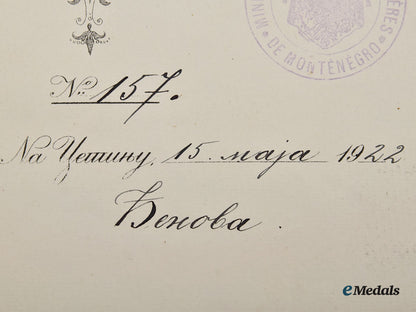 MINI ÈRES
DE MONTÉNÉGRO
№ 157.
На Цетињу, 15. маја 1922
Ђенова.
eMedals